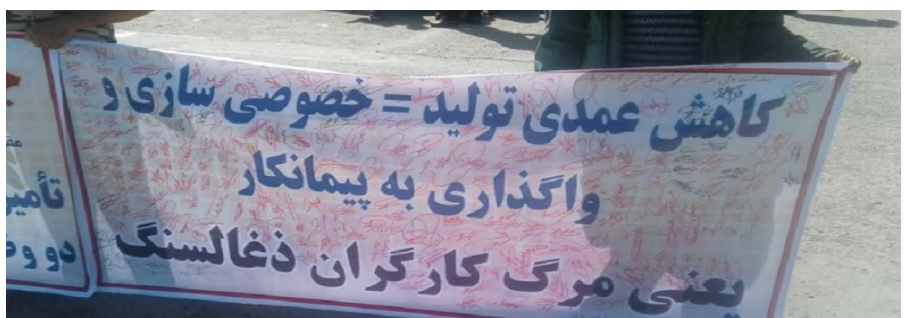 کاهش عمدی تولید = خصوصی سازی و
واگذاری به پیمانکار
یعنی مرگ کارگران ذغالسنگ
تأمین
دو و